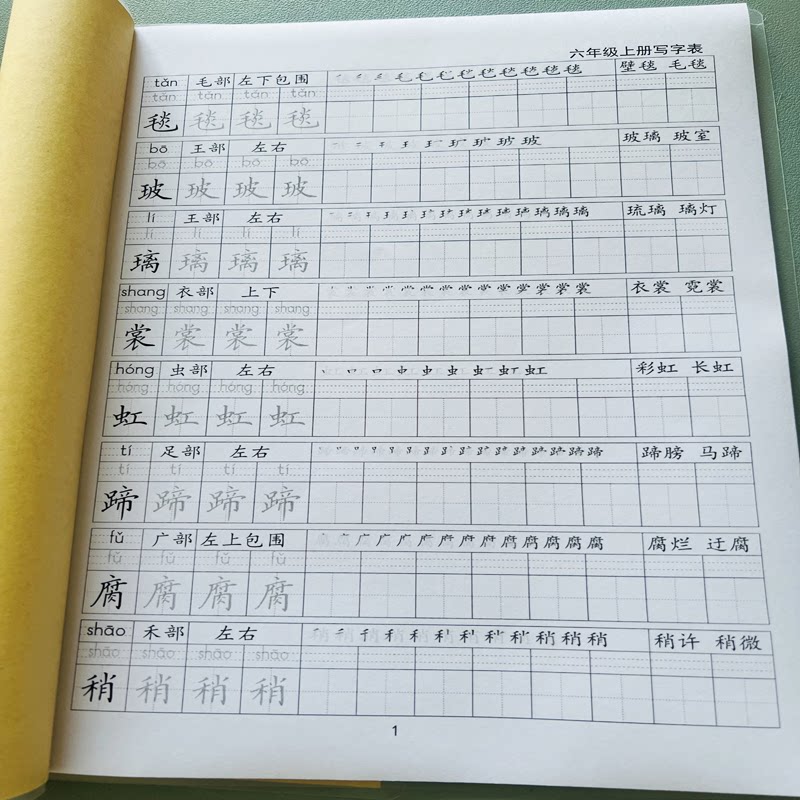 六年级上册写字表
tǎn 毛部 左下包围 毯 毯 毯 毯 壁毯 毛毯
tǎn tǎn tǎn tǎn
毯 毯 毯 毯
bō 王部 左右 玻 玻璃 玻室
bō bō bō
玻 玻 玻 玻
lí 王部 左右 璃 璃 璃 琉璃 璃灯
lí lí lí
璃 璃 璃 璃
shang 衣部 上下 裳 裳 裳 衣裳 霓裳
shang shang shang shang
裳 裳 裳 裳
hóng 虫部 左右 虹 彩虹 长虹
hóng hóng hóng hóng
虹 虹 虹 虹
tí 足部 左右 蹄 蹄 蹄膀 马蹄
tí tí tí
蹄 蹄 蹄 蹄
fǔ 广部 左上包围 腐 腐 腐 腐 腐烂 迂腐
fǔ fǔ fǔ
腐 腐 腐 腐
shāo 禾部 左右 稍 稍 稍 稍许 稍微
shāo shāo shāo shāo
稍 稍 稍 稍
1